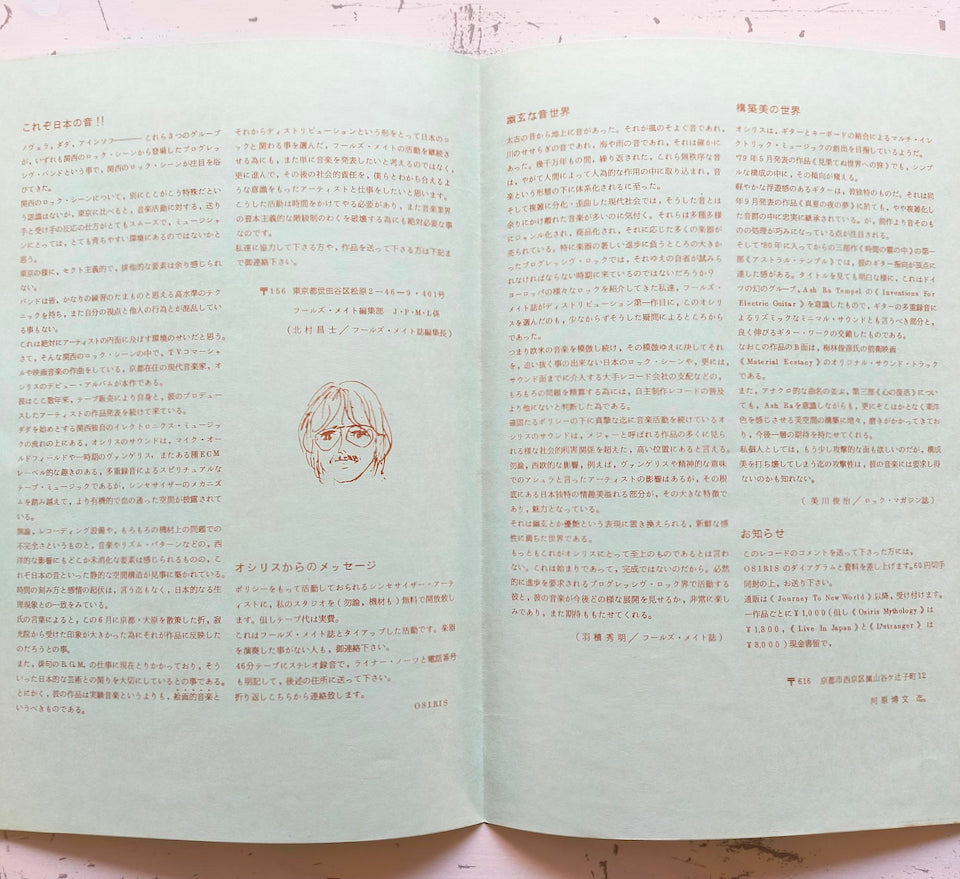 これぞ日本の音!!
ノヴェラ、ダダ、アインソフ―――これら3つのグループ
が、いずれも関西のロック・シーンから登場したプログレッ
シヴ・バンドという事で、関西のロック・シーンが注目を浴
びてきた。
関西のロック・シーンについて、別にここがこう特殊だとい
う認識はないが、東京に比べると、音楽活動に対する、送り
手と受け手の反応の仕方がとてもスムーズで、ミュージシャ
ンにとっては、とても育ちやすい環境にあるのではないかと
思う。
東京の様に、セクト主義的で、排他的な要素は余り感じられ
ない。
バンドは皆、かなりの練習のたまものと思える高水準のテク
ニックを持ち、また自分の視点と他人の行為とが混乱してい
る事もない。
これは絶対にアーティストの内面に及ぼす環境のせいだと思う。
さて、そんな関西のロック・シーンの中で、TVコマーシャ
ルや映画音楽の作曲をしている、京都在住の現代音楽家、オ
シリスのデビュー・アルバムが本作である。
彼はここ数年来、テープ販売により自身と、彼のプロデュー
スしたアーティストの作品発表を続けて来ている。
ダダを始めとする関西独自のイレクトロニクス・ミュージッ
クの流れの上にある。オシリスのサウンドは、マイク・オー
ルドフィールドや一時期のヴァンゲリス、またある種ECM
レーベル的な趣きのある、多重録音によるスピリチュアルな
テープ・ミュージックであるが、シンセサイザーのメカニズ
ムを踏み越えて、より有機的で血の通った空間が披露されて
いる。
無論、レコーディング設備や、もろもろの機材上の問題での
不完全さというものと、音楽やリズム・パターンなどの、西
洋的な影響にもどこか未消化な要素は感じられるものの、こ
れぞ日本の音といった静的な空間構造が見事に築かれている。
時間の刻み方と感情の起伏は、言う迄もなく、日本的なる生
理現象との一致をみている。
氏の言葉によると、この6月に京都・大原を散策した折、寂
光院から受けた印象が大きかった為にそれが作品に反映した
のだろうとの事。
また、俳句のB.G.M.の仕事に現在とりかかっており、そう
いった日本的な芸術との関りを大切にしているとの事である。
とにかく、彼の作品は実験音楽というよりも、絵画的音楽と
いうべきものである。
それからディストリビューションという形をとって日本のロ
ックと関わる事を選んだ、フールズ・メイトの活動を継続さ
せる為にも、また単に音楽を発表したいと考えるのではなく、
更に進んで、その後の社会的責任を、僕らとわかち合えるよ
うな意識をもったアーティストと仕事をしたいと思います。
こうした活動は時間をかけてやる必要があり、また音楽業界
の資本主義的な階級制のわくを破壊する為にも絶対必要な事
なのです。
私達に協力して下さる方や、作品を送って下さる方は下記ま
で御連絡下さい。
〒156 東京都世田谷区松原2―46―9・401号
フールズ・メイト編集部 J・P・M・L係
(北村昌士/フールズ・メイト誌編集長)
オシリスからのメッセージ
ポリシーをもって活動しておられるシンセサイザー・アーテ
ィストに、私のスタジオを(勿論、機材も)無料で開放致し
ます。但しテープ代は実費。
これはフールズ・メイト誌とタイアップした活動です。楽器
を演奏した事がない人も、御連絡下さい。
46分テープにステレオ録音で、ライナー・ノーツと電話番号
も明記して、後述の住所に送って下さい。
折り返しこちらから連絡致します。
OSIRIS
幽玄な音世界
太古の昔から地上に音があった。それが風のそよぐ音であれ、
川のせせらぎの音であれ、海や雨の音であれ、それは確かに
あった。幾千万年もの間、繰り返された、これら無秩序な音
は、やがて人間によって人為的な作用の中に取り込まれ、音
楽という形態の下に体系化されるに至った。
そして複雑に分化・歪曲した現代社会では、そうした音とは
余りにかけ離れた音楽が多いのに気付く。それらは多種多様
にジャンル化され、商品化され、それに応じた多くの楽器が
売られている。特に楽器の著しい進歩に負うところの大きか
ったプログレッシヴ・ロックでは、それゆえの自省が試みら
れなければならない時期に来ているのではないだろうか?
ヨーロッパの様々なロックを紹介してきた私達、フールズ・
メイト誌がディストリビューション第一作目に、このオシリ
スを選んだのも、少なからずそうした疑問によるところから
であった。
つまり欧米の音楽を模倣し続け、その模倣ゆえに決してそれ
を、追い抜く事の出来ない日本のロック・シーンや、更には、
サウンド面までに介入する大手レコード会社の支配などの、
もろもろの問題を精算する為には、自主制作レコードの普及
より他にないと判断した為である。
確固たるポリシーの下に真摯な迄に音楽活動を続けているオ
シリスのサウンドは、メジャーと呼ばれる作品の多くに見ら
れる様な社会的利害関係を超えた、高い位置にあると言える。
勿論、西欧的な影響、例えば、ヴァンゲリスや精神的な意味
でのアシュラと言ったアーティストの影響はあるが、その根
底にある日本独特の情趣美溢れる部分が、その大きな特徴で
あり、魅力となっている。
それは幽玄とか優艶という表現に置き換えられる、新鮮な感
性に満ちた世界である。
もっともこれがオシリスにとって至上のものであるとは言わ
ない。これは始まりであって、完成ではないのだから。必然
的に進歩を要求されるプログレッシヴ・ロック界で活動する
彼と、彼の音楽が今後どの様な展開を見せるか、非常に楽し
みであり、また期待ももたせてくれる。
(羽積秀明/フールズ・メイト誌)
構築美の世界
オシリスは、ギターとキーボードの結合によるマルチ・イレ
クトリック・ミュージックの創出を目指しているようだ。
'79年5月発表の作品《見果てぬ世界への旅》でも、シンプ
ルな構成の中に、その傾向が窺える。
軽やかな浮遊感のあるギターは、彼独特のものだ。それは同
年9月発表の作品《真夏の夜の夢》に於ても、やや複雑化し
た音群の中に忠実に継承されている。が、前作より音そのも
のの処理が巧みになっている点が注目される。
そして'80年に入ってからの三部作《時間の響の中》の第一
部《アストラル・テンプル》では、彼のギター指向が頂点に
達した感がある。タイトルを見ても明白な様に、これはドイ
ツの幻のグループ、Ash Ra Tempel の《Inventions For
Electric Guitar》を意識したもので、ギターの多重録音に
よるリズミックなミニマル・サウンドとも言うべき部分と、
良く伸びるギター・ワークの交錯したものである。
なおこの作品のB面は、梅林俊彦氏の前衛映画
《Material Ecstasy》のオリジナル・サウンド・トラック
である。
また、アナクロ的な曲名の並ぶ、第三部《心の復活》につい
ても、Ash Raを意識しながらも、更にそこはかとなく東洋
色を感じさせる美空間の構築に増々、磨きがかかってきてお
り、今後一層の期待を持たせてくれる。
私個人としては、もう少し攻撃的な面も欲しいのだが、構成
美を打ち壊してしまう迄の攻撃性は、彼の音楽には要求し得
ないのかも知れない。
(美川俊治/ロック・マガジン誌)
お知らせ
このレコードのコメントを送って下さった方には、
OSIRISのダイアグラムと資料を差し上げます。60円切手
同封の上、お送り下さい。
通販は《Journey To New World》以降、受け付けます。
一作品ごとに¥1,000(但し《Osiris Mythology》は
¥1,800、《Live In Japan》と《L'etranger》は
¥3,000)現金書留で、
〒616 京都市西京区嵐山谷ケ辻子町12
阿原博文 迄。